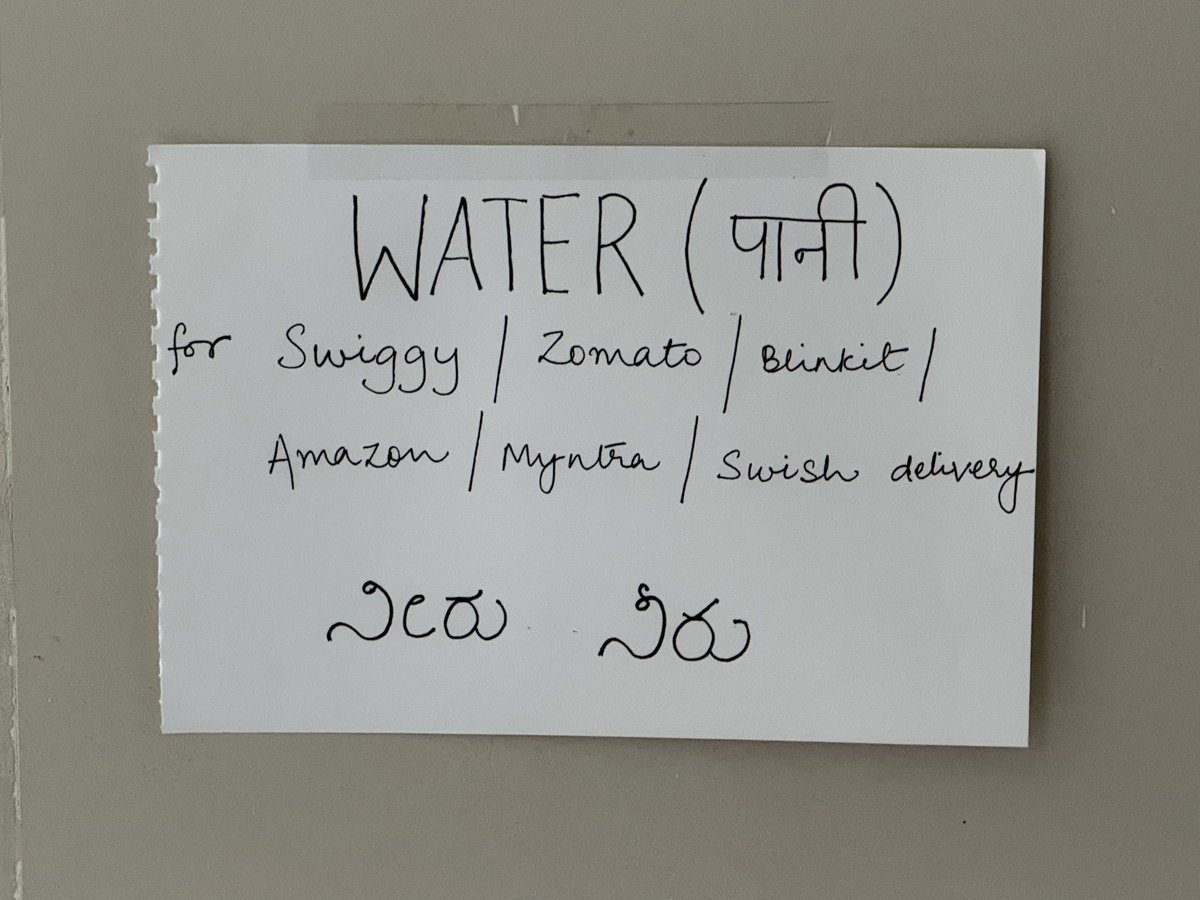 WATER (पानी)
for Swiggy / Zomato / Blinkit /
Amazon / Myntra / Swish delivery
ನೀರು ನೀರು